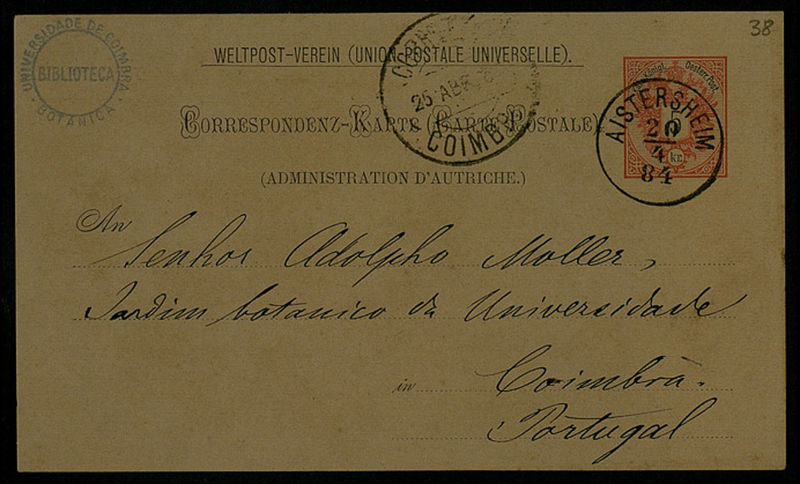 38
UNIVERSIDADE DE COIMBRA
BIBLIOTECA
BOTANICA
WELTPOST-VEREIN (UNION POSTALE UNIVERSELLE).
25 ABR
COIMBRA
Oesterr. Post.
5
kr.
AISTERSHEIM
20
4
84
CORRESPONDENZ-KARTE (CARTE POSTALE)
(ADMINISTRATION D'AUTRICHE.)
An
Senhor Adolpho Moller,
Jardim botanico da Universidade
in Coimbra.
Portugal